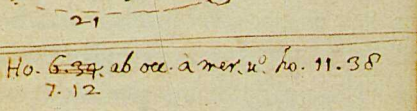 21
Ho. 6.34. ab occ. a mer. u.º ho. 11. 38
7. 12